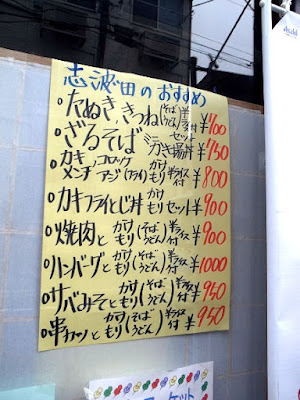 志波田のおすすめ
○たぬき、きつね(そば うどん)半ライス付 ¥700
○ざるそば ミニかき揚丼セット ¥750
○カキ メンチ コロッケ アジ(フライ) かけ もり 半ライス付 ¥800
○カキフライとじ丼 かけ もり セット ¥900
○焼肉と かけ もり(そば うどん)半ライス付 ¥900
○ハンバーグと かけ もり(そば うどん)半ライス付 ¥1000
○サバみそと かけ もり(そば うどん)半ライス付 ¥950
○串カツと かけ もり(そば うどん)半ライス付 ¥950
Asahi
ケット